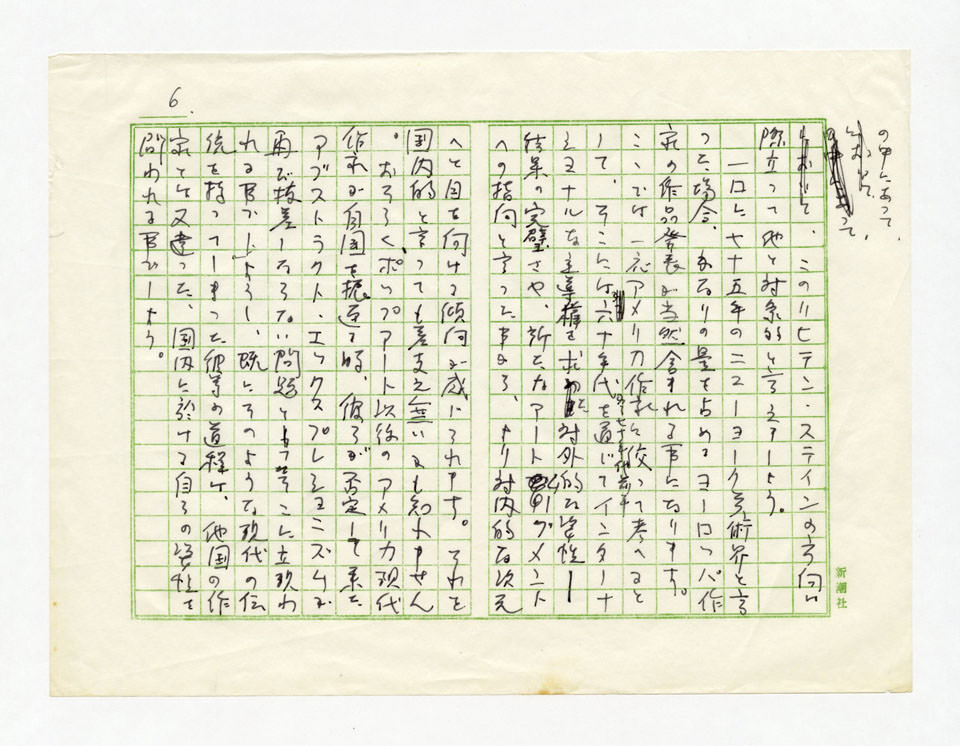 6.
の中にあって、
このリヒテン・スタインの方向は
際立って地と対象的と言えましょう。
一口に七十五年のニューヨーク美術界と言
った場合、かなりの量を占めるヨーロッパ作
家の作品発表が当然含まれる事になります。
ここでは一応アメリカ作家に絞って考へると
して、そこには六十年代
から七十年代前半
を通じてインターナ
ショナルな主導権を求めた対外的な姿勢―
結果の完璧さや、新たなアートムーヴメント
への指向と言った事から、より対内的な次元
へと目を向ける傾向が感じられます。それを
国内的と言っても差支え無いかも知れません
。おそらく、ポップアート以後のアメリカ現代
作家が自国を振返る時、彼らが否定して来た
アブストラクト・エックスプレショニズムが
再び抜差しならない問題としてそこに立現わ
れる事でしょうし、既にそのような現代の伝
統を持ってしまった彼等の道程は、他国の作
家とは又違った、国内に於ける自らの姿勢を
問われる事でしょう。
新潮社